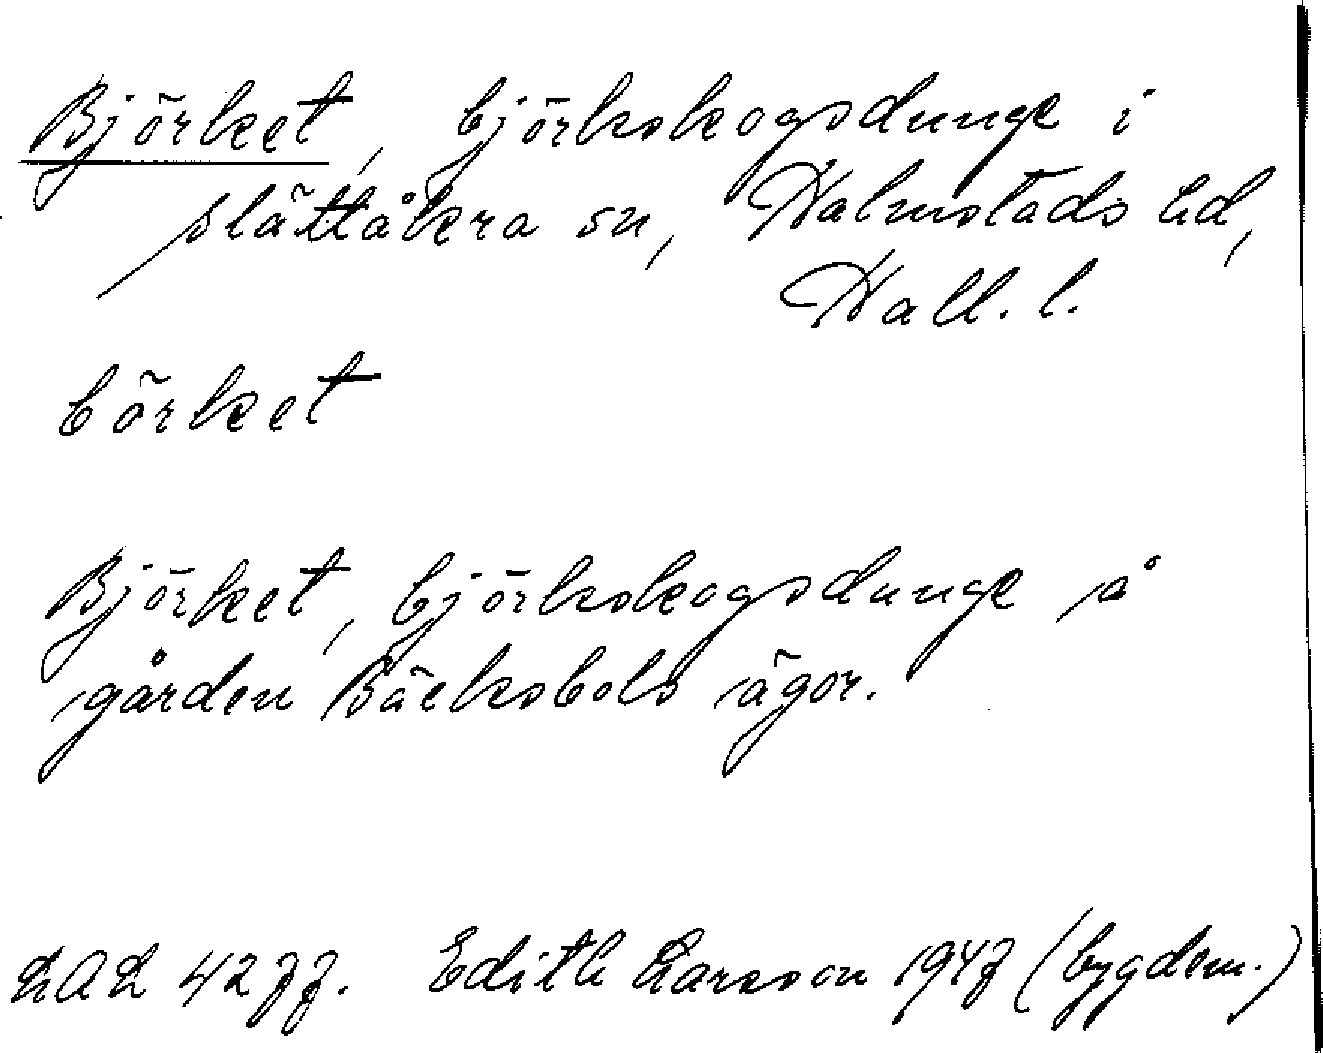 Björket, björkskogsdunge i
Slättåkra sn, Halmstads hd,
Hall. l.
börket
Björket, björkskogsdunge å
gården Bäcksbols ägor.
LAL 4277. Edith Larsson 1947 (bygdem.)